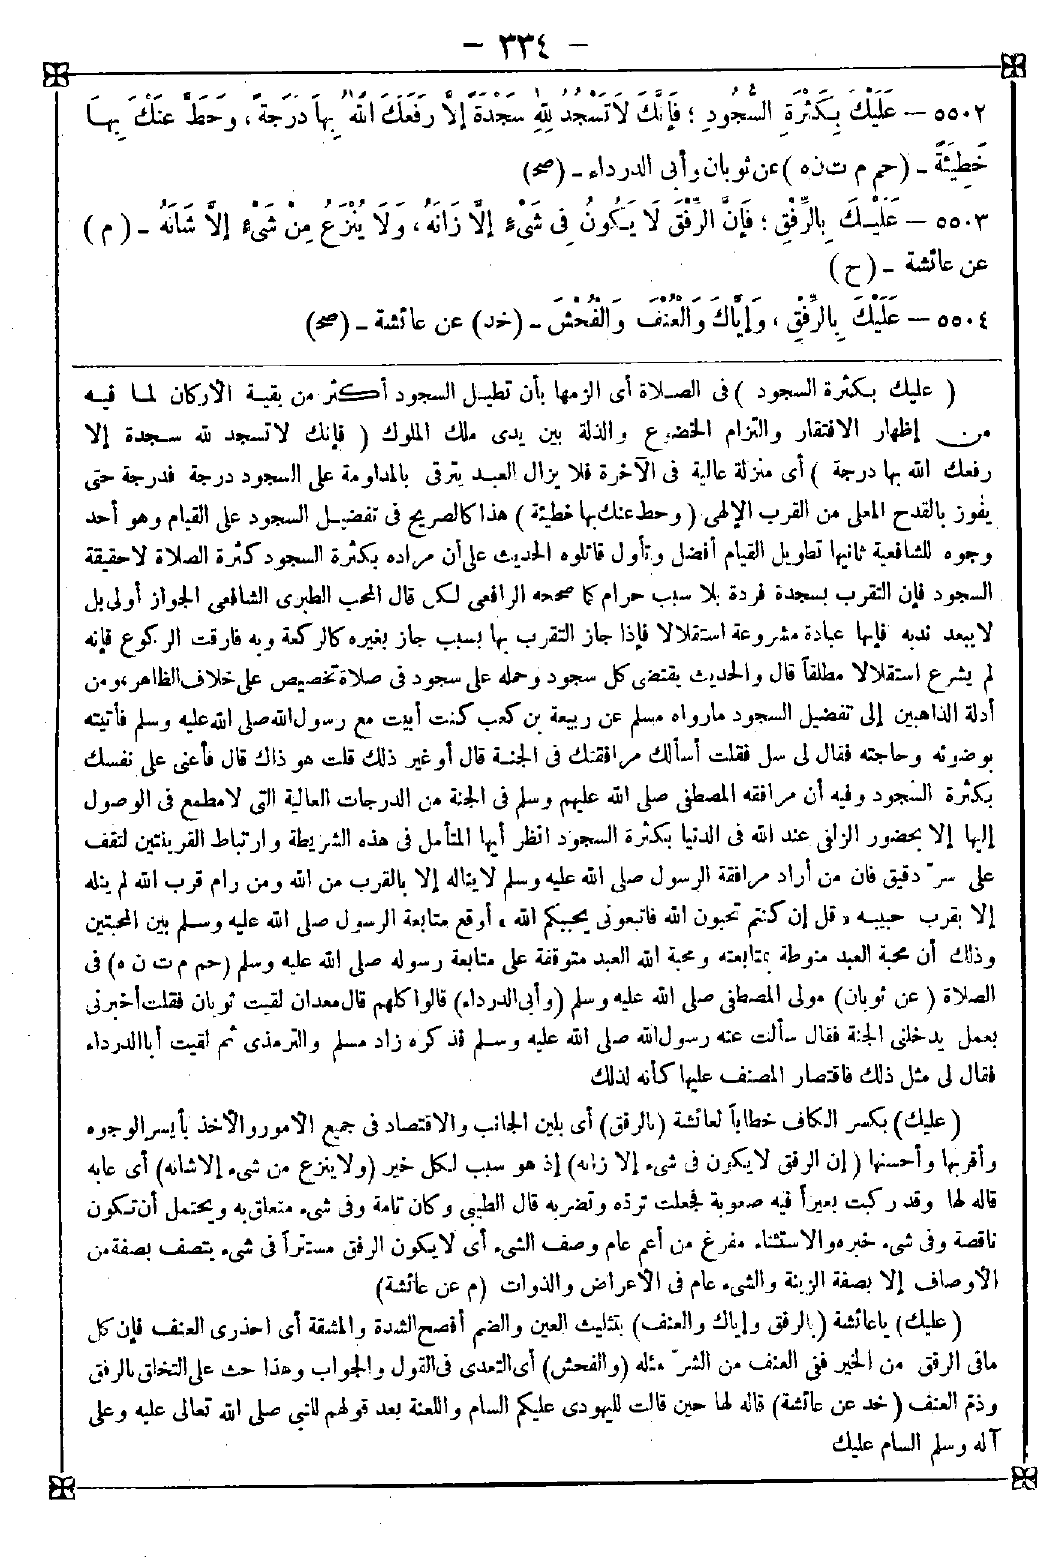 - ٣٣٤ -
٥٥٠٢ — عَلَيْكَ بِكَثْرَةِ السُّجُودِ ؛ فَإِنَّكَ لَا تَسْجُدُ لِلّٰهِ سَجْدَةً إِلَّا رَفَعَكَ اللّٰهُ بِهَا دَرَجَةً ، وَحَطَّ عَنْكَ بِهَا
خَطِيئَةً - (حم م ت ن ه) عن ثوبان وأبى الدرداء - (صح)
٥٥٠٣ — عَلَيْكَ بِالرِّفْقِ ؛ فَإِنَّ الرِّفْقَ لَا يَكُونُ فِى شَىْءٍ إِلَّا زَانَهُ ، وَلَا يُنْزَعُ مِنْ شَىْءٍ إِلَّا شَانَهُ - ( م )
عن عائشة - (ح)
٥٥٠٤ — عَلَيْكَ بِالرِّفْقِ ، وَإِيَّاكَ وَالْعُنْفَ وَالْفُحْشَ - (خد) عن عائشة - (صح)
( عليك بكثرة السجود ) فى الصلاة أى الزمها بأن تطيل السجود أكثر من بقية الأركان لما فيه
من إظهار الافتقار والتزام الخضوع والذلة بين يدى ملك الملوك ( فإنك لا تسجد لله سجدة إلا
رفعك الله بها درجة ) أى منزلة عالية فى الآخرة فلا يزال العبد يترقى بالمداومة على السجود درجة فدرجة حتى
يفوز بالقدح المعلى من القرب الإلهى ( وحط عنك بها خطيئة ) هذا كالصريح فى تفضيل السجود على القيام وهو أحد
وجوه للشافعية ثانيها تطويل القيام أفضل وتأول قائلوه الحديث على أن مراده بكثرة السجود كثرة الصلاة لا حقيقة
السجود فإن التقرب بسجدة فردة بلا سبب حرام كما صححه الرافعى لكن قال المحب الطبرى الشافعى الجواز أولى بل
لا يبعد ندبه فإنها عبادة مشروعة استقلالا فإذا جاز التقرب بها بسبب جاز بغيره كالركعة وبه فارقت الركوع فإنه
لم يشرع استقلالا مطلقاً قال والحديث يقتضى كل سجود وحمله على سجود فى صلاة تخصيص على خلاف الظاهر ، ومن
أدلة الذاهبين إلى تفضيل السجود مارواه مسلم عن ربيعة بن كعب كنت أبيت مع رسول الله صلى الله عليه وسلم فأتيته
بوضوئه وحاجته فقال لى سل فقلت أسألك مرافقتك فى الجنة قال أو غير ذلك قلت هو ذاك قال فأعنى على نفسك
بكثرة السجود وفيه أن مرافقة المصطفى صلى الله عليهم وسلم فى الجنة من الدرجات العالية التى لا مطمع فى الوصول
إليها إلا بحضور الزلفى عند الله فى الدنيا بكثرة السجود انظر أيها المتأمل فى هذه الشريطة وارتباط القرينتين لتقف
على سرّ دقيق فان من أراد مرافقة الرسول صلى الله عليه وسلم لا يناله إلا بالقرب من الله ومن رام قرب الله لم ينله
إلا بقرب حبيبه « قل إن كنتم تحبون الله فاتبعونى يحببكم الله » أوقع متابعة الرسول صلى الله عليه وسلم بين المحبتين
وذلك أن محبة العبد منوطة بمتابعته ومحبة الله العبد متوقفة على متابعة رسوله صلى الله عليه وسلم (حم م ت ن ه) فى
الصلاة ( عن ثوبان) مولى المصطفى صلى الله عليه وسلم (وأبى الدرداء) قالوا كلهم قال معدان لقيت ثوبان فقلت أخبرنى
بعمل يدخلنى الجنة فقال سألت عنه رسول الله صلى الله عليه وسلم فذكره زاد مسلم والترمذى ثم لقيت أبا الدرداء
فقال لى مثل ذلك فاقتصار المصنف عليها كأنه لذلك
(عليك) بكسر الكاف خطاباً لعائشة (بالرفق) أى بلين الجانب والاقتصاد فى جميع الأمور والأخذ بأيسر الوجوه
وأقربها وأحسنها ( إن الرفق لا يكون فى شىء إلا زانه) إذ هو سبب لكل خير (ولا ينزع من شىء إلا شانه) أى عابه
قاله لها وقد ركبت بعيراً فيه صعوبة فجعلت تردّه وتضربه قال الطيبى وكان تامة وفى شىء متعلق به ويحتمل أن تكون
ناقصة وفى شىء خبره والاستثناء مفرغ من أعم عام وصف الشىء أى لا يكون الرفق مستقراً فى شىء يتصف بصفة من
الأوصاف إلا بصفة الزينة والشىء عام فى الأعراض والذوات (م عن عائشة)
(عليك) يا عائشة (بالرفق وإياك والعنف) بتثليث العين والضم أفصح الشدة والمشقة أى احذرى العنف فإن كل
مافى الرفق من الخير ففى العنف من الشرّ مثله (والفحش) أى التعدى فى القول والجواب وهذا حث على التخلق بالرفق
وذمّ العنف ( خد عن عائشة) قاله لها حين قالت لليهودى عليكم السام واللعنة بعد قولهم للنبى صلى الله تعالى عليه وعلى
آله وسلم السام عليك